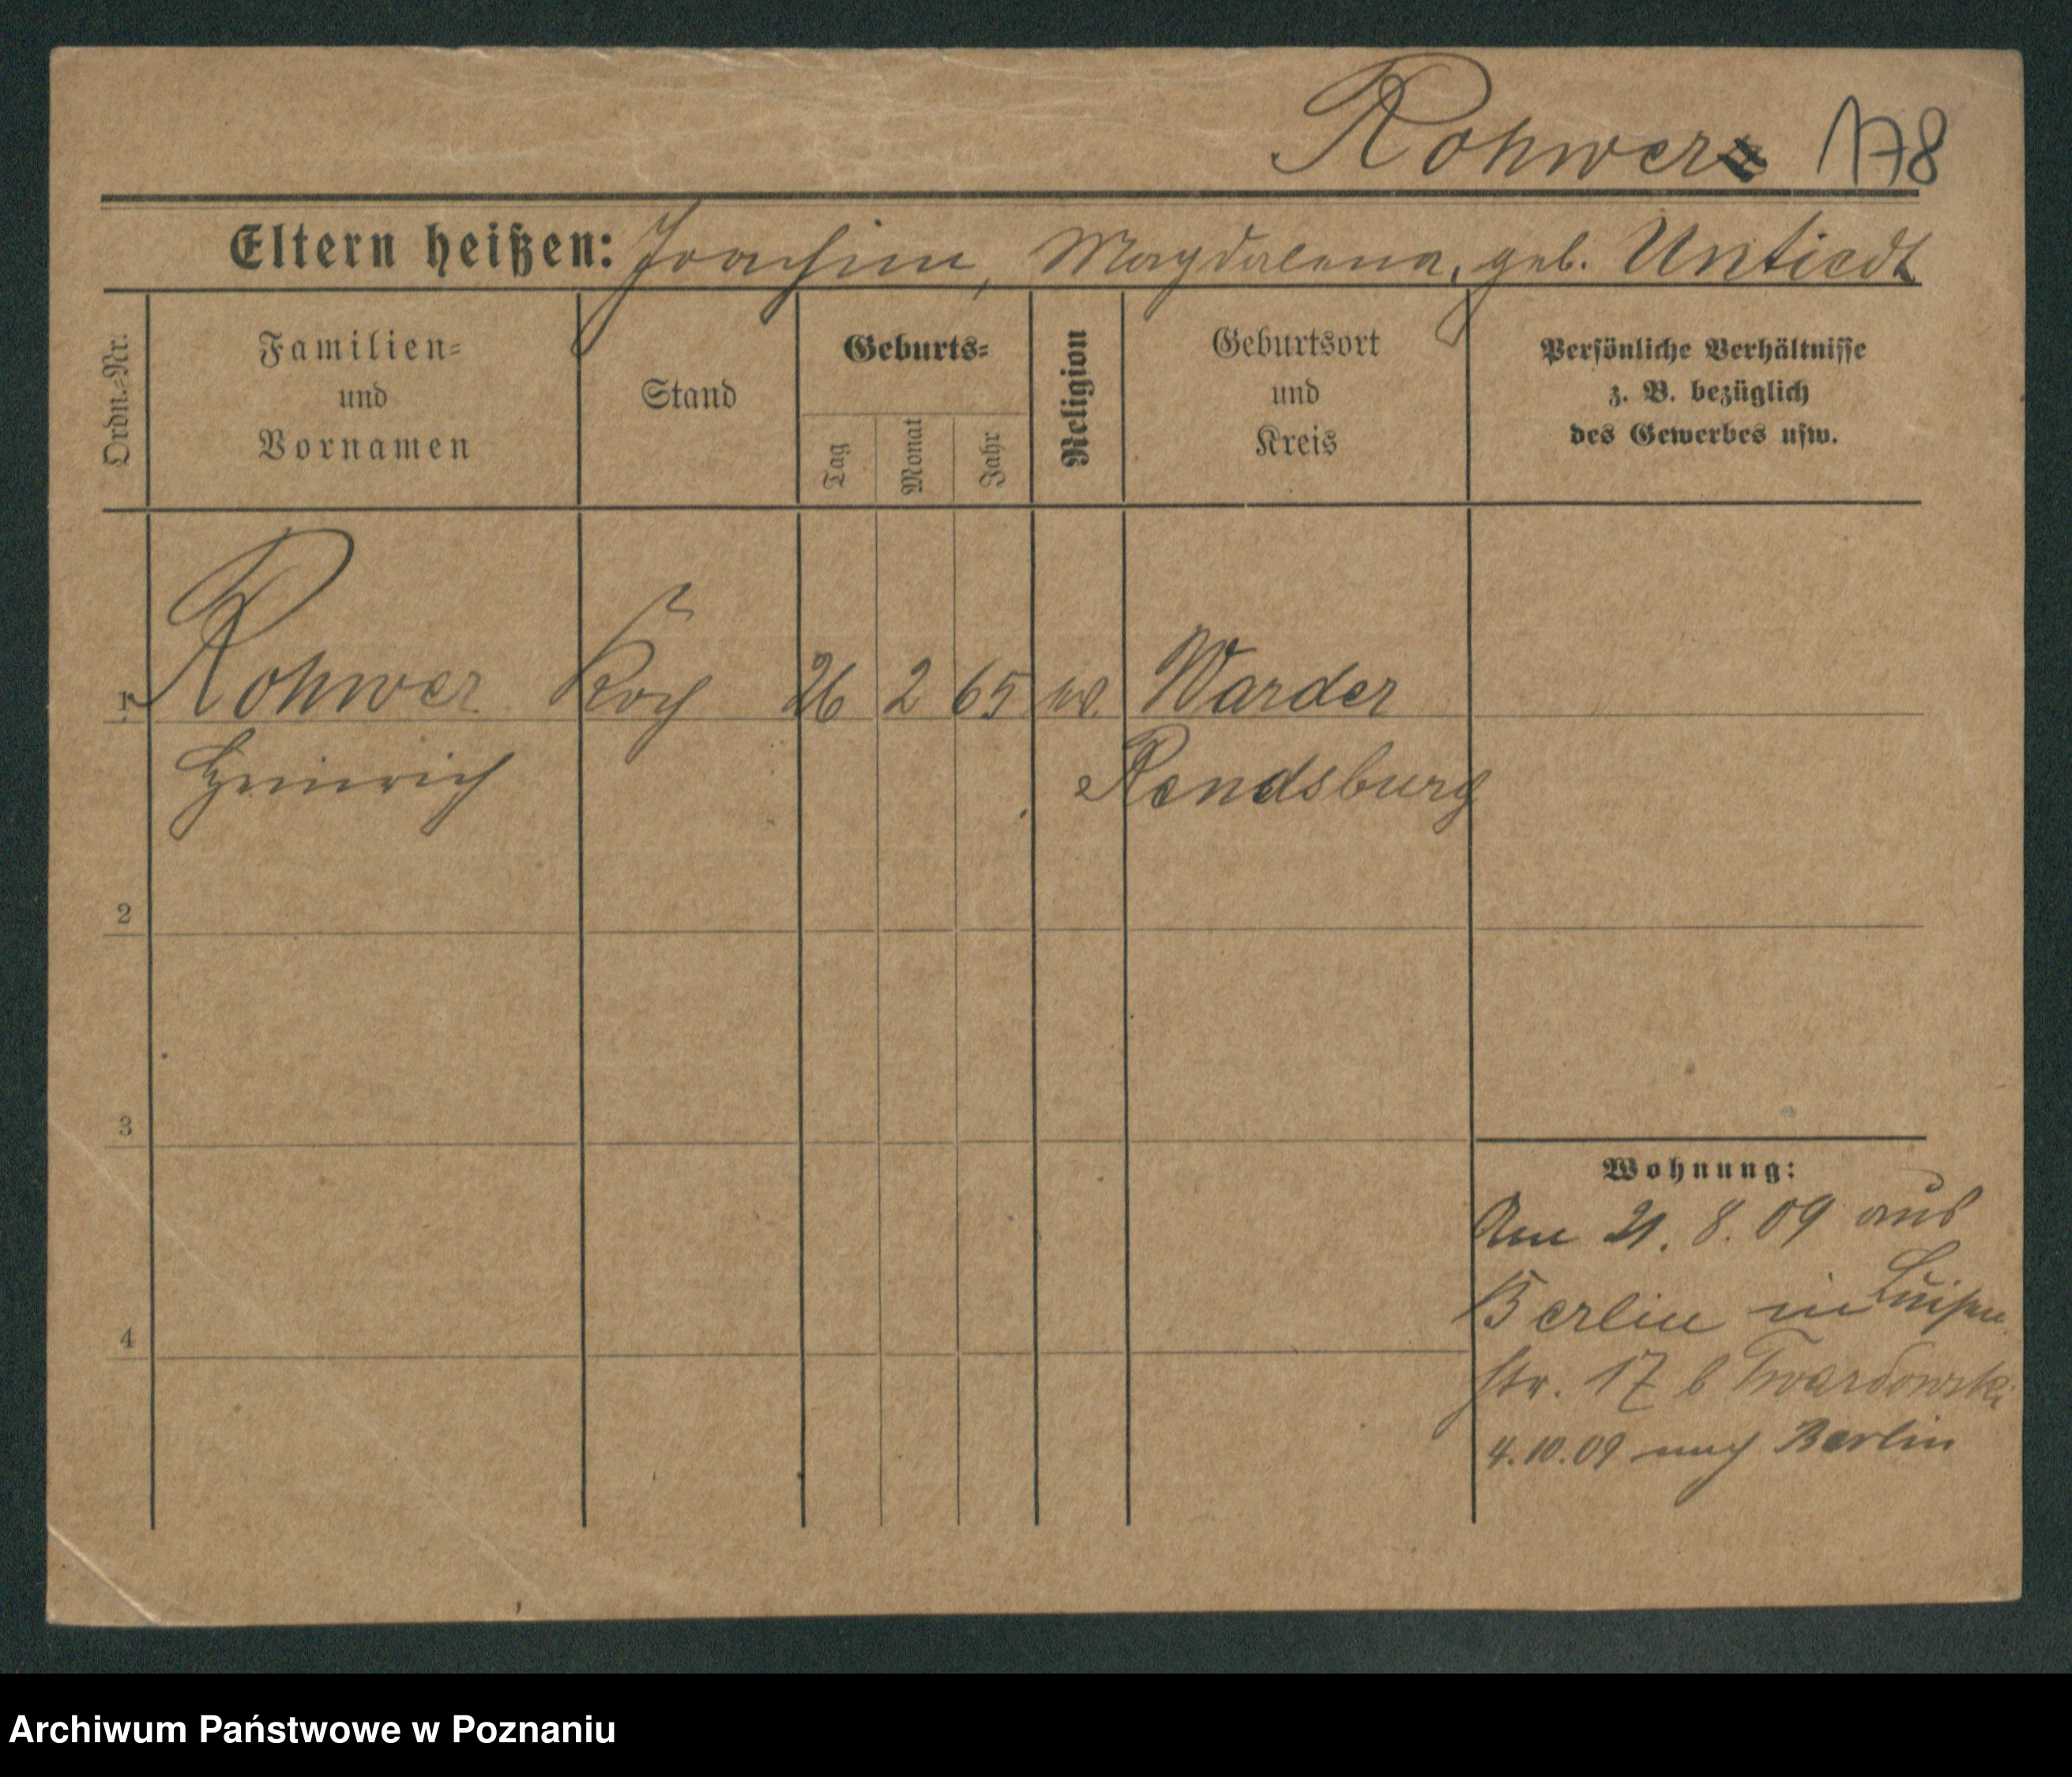 Rohwer 178
Eltern heißen: Joachim, Magdalena, geb. Untiedt
Ordn.-Nr.
Familien- und Vornamen
Stand
Geburts-
Tag
Monat
Jahr
Religion
Geburtsort und Kreis
Persönliche Verhältnisse
z. B. bezüglich
des Gewerbes usw.
1 Rohwer Koch 26 2 65 ev. Warder
Heinrich Rendsburg
2
3
4
Wohnung:
Am 21. 8. 09 aus
Berlin in Luisen
str. 17 b Twardowski
4.10.09 nach Berlin
Archiwum Państwowe w Poznaniu